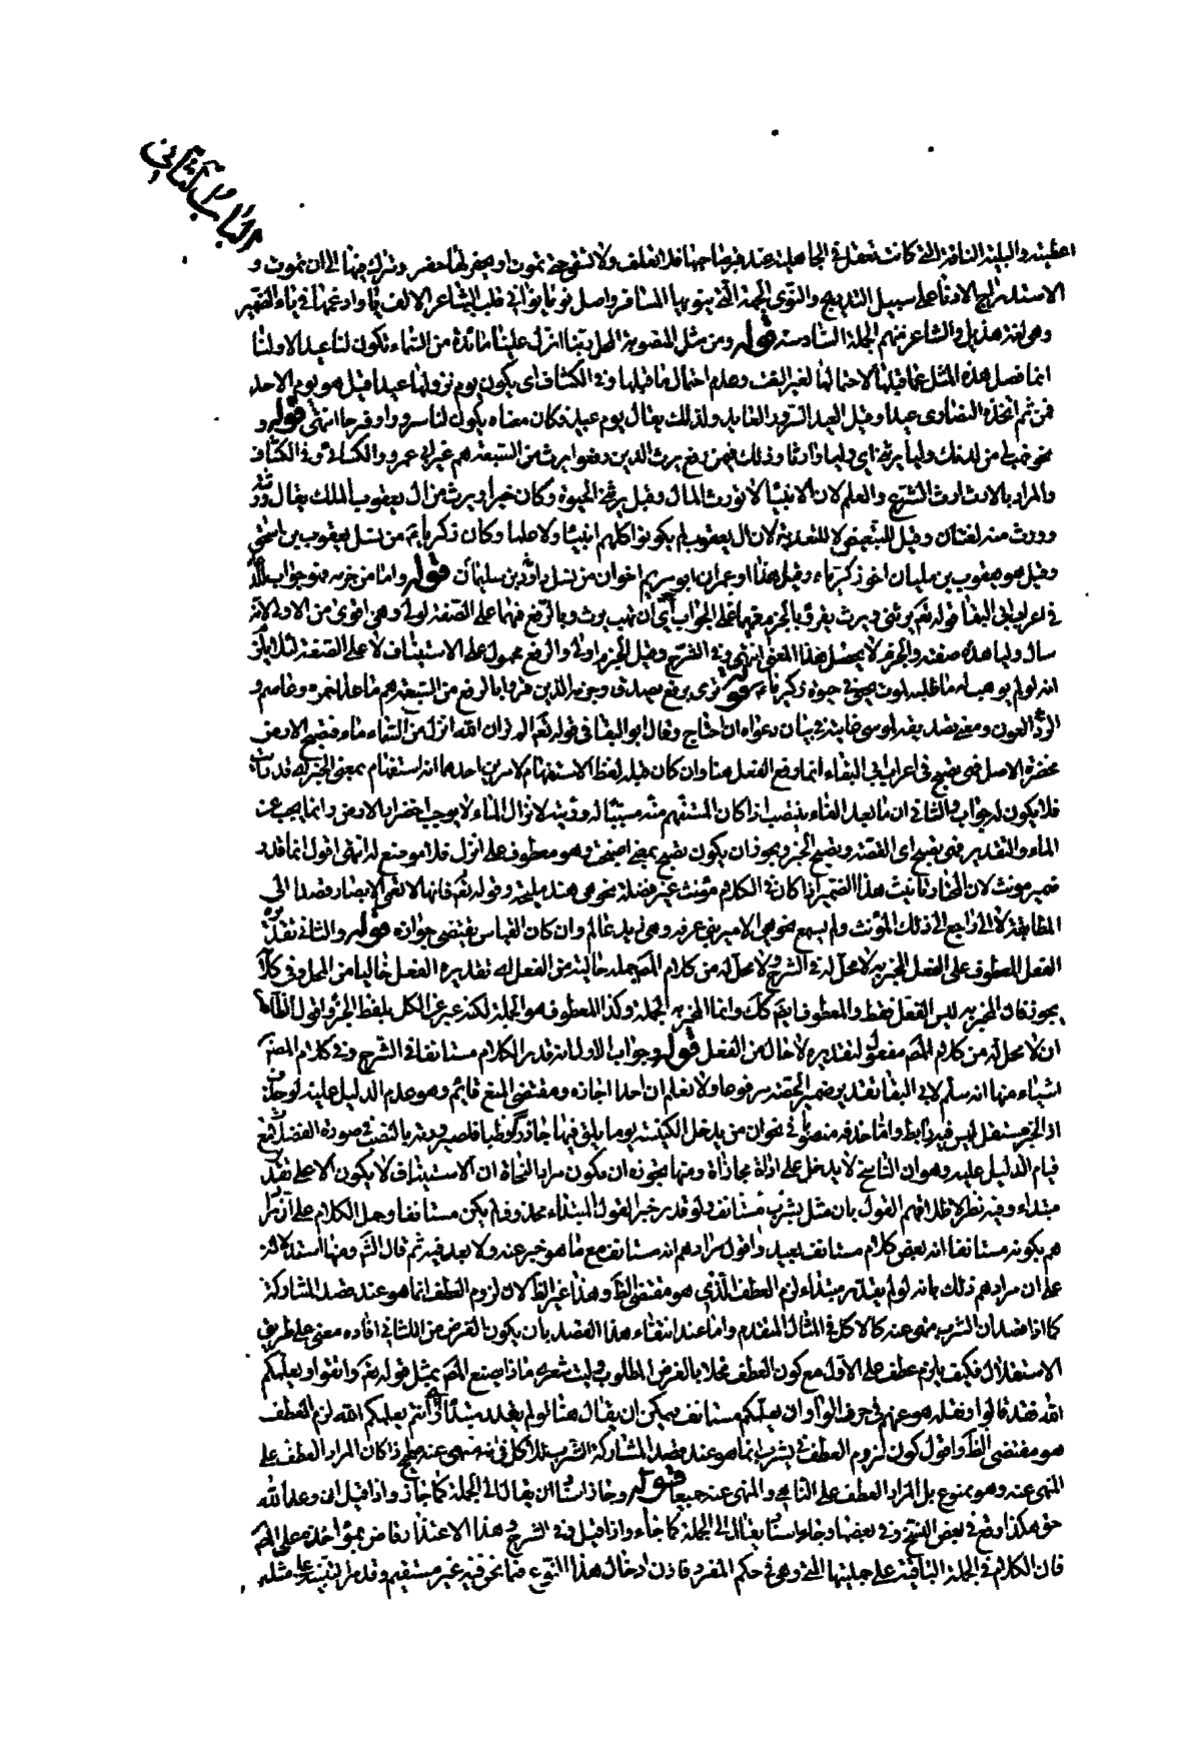 الباب الثاني
اعطيته والبلية الناقة التي كانت تعقل في الجاهلية عند قبر صاحبها فلا تعلف ولا تسقى حتى تموت او يحفر لها حفر وتترك فيها الى ان تموت و
الاستدراج الادناء على سبيل التدريج والنوى الجهة التي ينويها المسافر واصل نويا نواي قلب الشاعر الالف ياء وادغمها في ياء الضمير
وهي لغة هذيل والشاعر منهم الجملة السادسة قوله ومن مثل المنصوبة المحل ربنا انزل علينا مائدة من السماء تكون لنا عيدا لاولنا
انما فصل هذه المثل عما قبلها لاحتمالها لغير النعت وعدم احتمال ما قبلها وفي الكشاف اي يكون يوم نزولها عيدا قيل هو يوم الاحد
فمن ثم اتخذه النصارى عيدا وقيل العيد السرور العايد ولذلك يقال يوم عيد فكان معناه يكون لنا سرورا وفرحا انتهى قوله و
نحو فهب لي من لدنك وليا يرثني اي وليا وارثا وذلك فيمن رفع يرث الذين رفعوا يرث من السبعة هم غير ابي عمرو والكسائي وفي الكشاف
والمراد بالارث ارث الشرع والعلم لان الانبياء لا تورث المال وقيل يرثني الحبورة وكان حبرا ويرث من ال يعقوب الملك يقال ورثته
وورثت منه لغتان وقيل للتبعيض لا للتعدية لان ال يعقوب لم يكونوا كلهم انبياء ولا علماء وكان زكريا ع م من نسل يعقوب بن اسحق
وقيل هو يعقوب بن ماثان اخو زكرياء وقيل هذا وعمران ابو مريم اخوان من نسل داود بن سليمان قوله واما من جزمه فهو جواب للدعاء
في اعراب ابي البقا قوله تعالى يرثني ويرث يقرأ بالجزم فيهما على الجواب اي ان تهب يرث وبالرفع فيهما على الصفة لولي وهي اقوى من الاولى لانه
سال وليا هذه صفته والجزم لا يحصل هذا المعنى انتهى وفي الشرح وقيل الجزم اولى والرفع محمول على الاستيناف لا على الصفة لئلا يلزم
انه لم يوهب له ما طلبه لموت يحيى في حيوة زكرياء قوله قرى برفع يصدق وجزمه الذين قراوا بالرفع من السبعة هم ما عدا حمزة وعاصم و
الردء العون ومعنى تصديقه لموسى اعانته في بيان دعواه ان احتاج وقال ابو البقا في قوله تعالى الم تر ان الله انزل من السماء ماء فتصبح الارض
مخضرة الاصل فهي تصبح في اعراب ابي البقاء انما رفع الفعل هنا وان كان قبله لفظ الاستفهام لامرين احدهما انه استفهام بمعنى الخبر اي قد رايت
فلا يكون له جواب والثاني ان ما بعد الفاء ينتصب اذا كان المستفهم عنه سببا له ورؤيته لانزال الماء لا يوجب اخضرار الارض وانما يجب عن
الماء والتقدير فهي تصبح اي القصة وتصبح الخبر ويجوز ان يكون تصبح بمعنى اصبحت وهو معطوف على انزل فلا موضع له انتهى اقول انما قدر
ضمير مونث لان المختار تانيث هذا الضمير اذا كان في الكلام مؤنث غير فضلة نحو هي هند مليحة وقوله تعالى فانها لا تعمى الابصار قصدا الى
المطابقة لا الى راجع الى ذلك المؤنث ولم يسمع نحو هي الامير بني غرفة وهي زيد عالم وان كان القياس يقتضي جوازه قوله والثاني تقديره
الفعل المعطوف على الفعل المخبر به لا محل له في الشرح ولا محل له من كلام المص جملة حالية من الفعل اي تقديره الفعل خاليا من المحل وفي كلامه
تجوز فان المخبر به ليس الفعل فقط والمعطوف ايضا كك وانما المخبر به الجملة وكذا المعطوف هو الجملة لكنه عبر عن الكل بلفظ الجزء واقول الظاهر
ان لا محل له من كلام المص مفعول لتقديره لا حال من الفعل قوله وجواب الاول انه قدر الكلام مستانفا في الشرح وفي كلام المص
اشياء منها انه سلم لابي البقا تقدير ضمير القصة مرفوعا ولا نعلم ان احدا اجازه ومقتضى المنع قايم وهو عدم الدليل عليه لو حذف
اذ الخبر مستقل ليس فيه رابط واما حذفه منصوبا في نحو ان من يدخل الكنيسة يوما يلق فيها جاذرا وظباء فلصيرورته بالنصب في صورة الفضلة مع
قيام الدليل عليه وهو ان الناسخ لا يدخل على اداة مجازاة ومنها تجويزه ان يكون مراد النحاة ان الاستيناف لا يكون الا على تقدير
مبتداء وفيه نظر لاطلاقهم القول بان مثل يشرب مستانف ولو قدر خبرا لقول المبتداء محذوف لم يكن مستانفا وحمل الكلام على ان مراد
هم بكونه مستانفا انه بعض كلام مستانف بعيد واقول مرادهم انه مستانف مع ما هو خبر عنه ولا بعد فيه ثم قال الش ومنها استدلاله
على ان مرادهم ذلك بانه لو لم يقدر مبتداء لزم العطف الذي هو مقتضى الظ وهذا غير الظ لان لزوم العطف انما هو عند قصد المشاركة
كما اذا قصد ان الشرب منهي عنه كالاكل في المثال المتقدم واما عند انتفاء هذا القصد بان يكون الغرض من الثاني افاده معنى على طريق
الاستقلال فكيف يلزم عطفه على الاول مع كون العطف مخلا بالغرض المطلوب وليت شعري ماذا يصنع المص بمثل قوله تعالى واتقوا ويعلمكم
الله فقد قالوا ونقله هو عنهم في حرف الواو ان يعلمكم مستانف يمكن ان يقال هنا لو لم يقدر مبتدا اي وانتم يعلمكم الله لزم العطف
هو مقتضى الظ واقول كون لزوم العطف في يشرب انما هو عند قصد المشاركة الشرب للاكل في انه منهي عنه صح اذا كان المراد العطف على
المنهي عنه وهو ممنوع بل المراد العطف على الناهي والمنهي عنه جميعا قوله وجاز استا ان يقال الى الجملة كما جاز واذا قيل ان وعد الله
حق هكذا وقع في بعض النسخ وفي بعضها وجاء استا يقال الى الجملة كما جاء واذا قيل في الشرح وهذا الاعتذار قاض بمؤاخذة على المص
فان الكلام في الجملة الباقية على جمليتها التي وهي في حكم المفرد فاذن ادخال هذا النوع فيما نحن فيه غير مستقيم وقد مر التنبيه على مثله